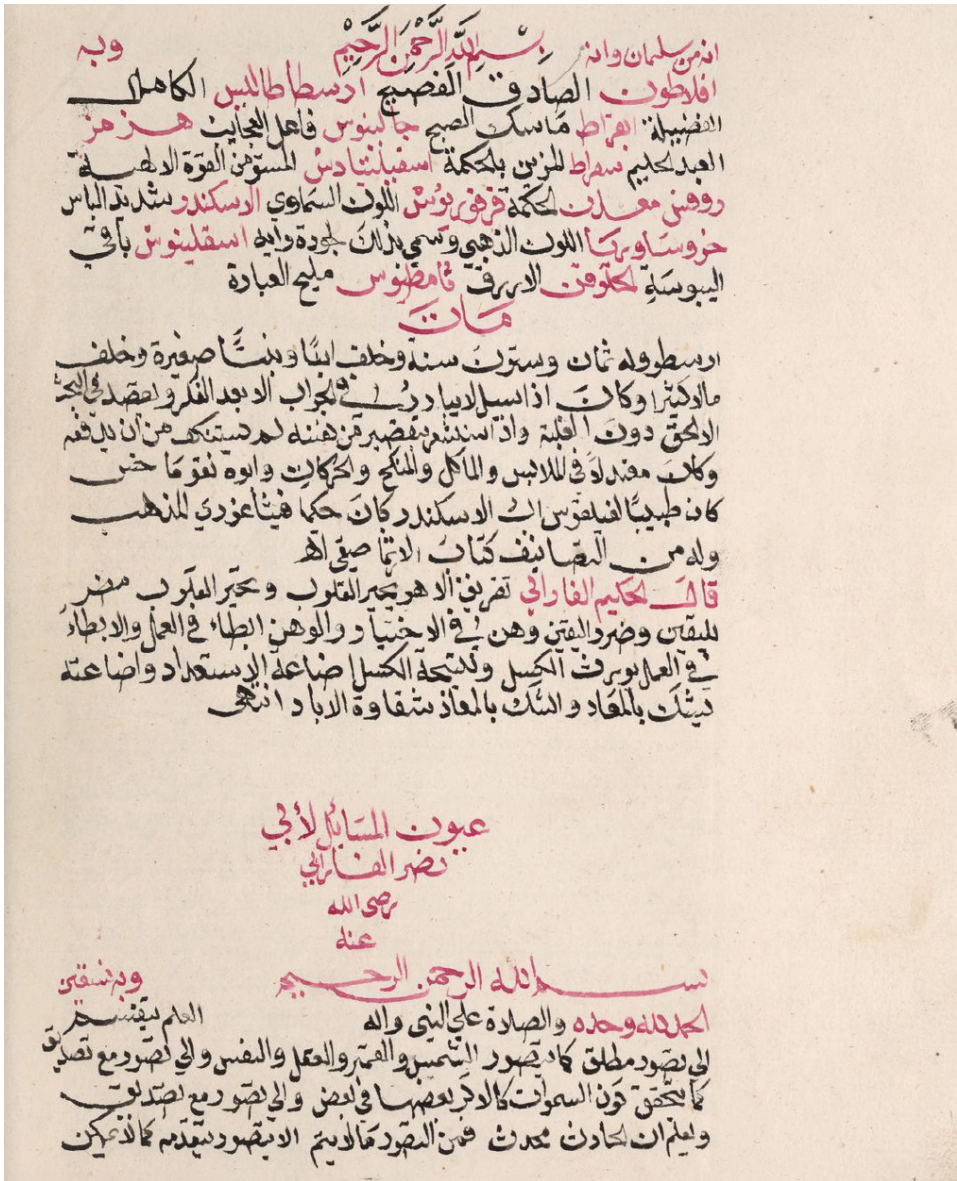 انه من سليمان وانه بِسْمِ اللَّهِ الرَّحْمَنِ الرَّحِيْمِ وبه
افلاطون الصادق الفصيح ارسطاطاليس الكامل
الفضيلة ابقراط ماسك الصبح جالينوس فاعل العجايب هرمز
العبد الحليم سقراط المزين بالحكمة المستوهن القوة الالهية
روفس معدن الحكمة فرفوريوس اللون السماوي الاسكندر شديد الباس
اللون الذهبي وسمي بذلك لجودة رايه اسقلينوش باقي
اليبوسة مليح العبادة
مات
ارسطو وله ثمان وستون سنة وخلف ابنًا وبنتًا صغيرة وخلف
مالا كثيرا وكان اذا سيل لايبادر في الجواب الا بعد الفكر ولا يقصد في البحث
الا الحق دون الغلبة واذا استشعر بتقصير من نفسه لم يستنكف من ان
وكان معتدلاً في الملابس والماكل والمنكح والحركات وابوه نقوماخس
كان طبيبًا لفيلقوس اب الاسكندر كان حكيما فيثاغوري المذهب
وله من التصانيف كتاب الارثماطيقي اهـ
قال الحكيم الفارابي تفريق الاهو يحير القلوب وتحير القلوب مضر
لليقين وضرر اليقين وهن في الاختيار والوهن ابطاء في العمل والابطاء
في العمل يورث الكسل ونتيجة الكسل اضاعة الاستعداد واضاعته
تشك بالمعاد والشك بالمعاد شقاوة الاباد انتهى
عيون المسايل لأبي
نصر الفارابي
رضى الله
عنه
بسم الله الرحمن الرحيم وبه نستعين
الحمد لله وحده والصلاة علي النبي واله العلم ينقسم
الي تصور مطلق كما يتصور الشمس والقمر والعقل والنفس والي تصور مع تصديق
كما يتحقق كون السموات كالاكر بعضها في بعض والي تصور مع تصديق
ويعلم ان الحادث محدث فمن التصور ما لا يتم الا بتصور يتقدمه كما لا يمكن